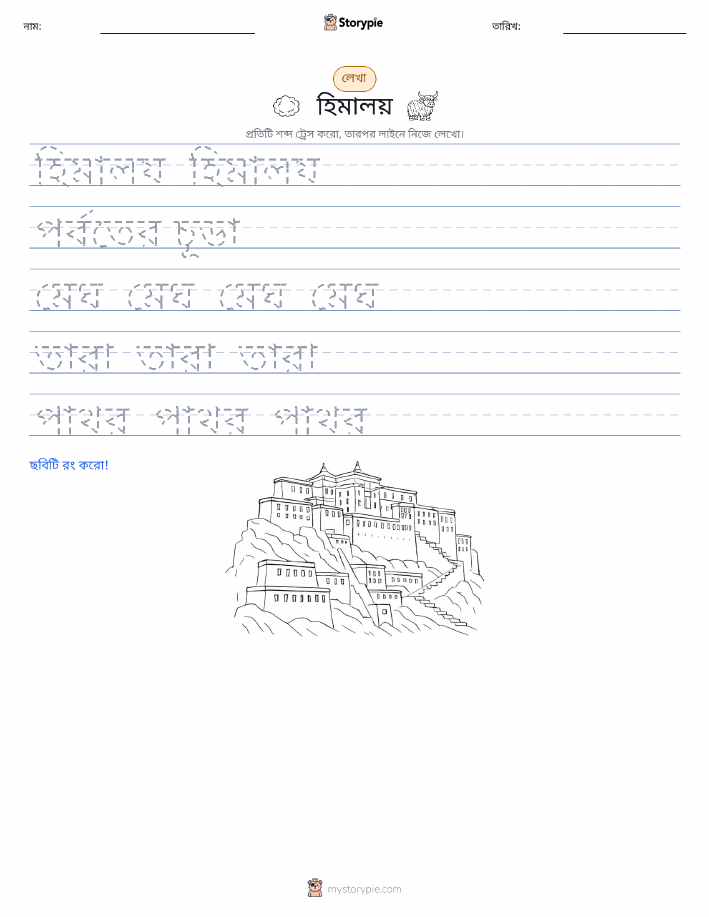 নাম:
Storypie
তারিখ:
লেখা
হিমালয়
প্রতিটি শব্দ ট্রেস করো, তারপর লাইনে নিজে লেখো।
হিমালয় হিমালয়
পর্বতের চূড়া
মেঘ মেঘ মেঘ মেঘ
তারা তারা তারা
পাথর পাথর পাথর
ছবিটি রং করো!
mystorypie.com